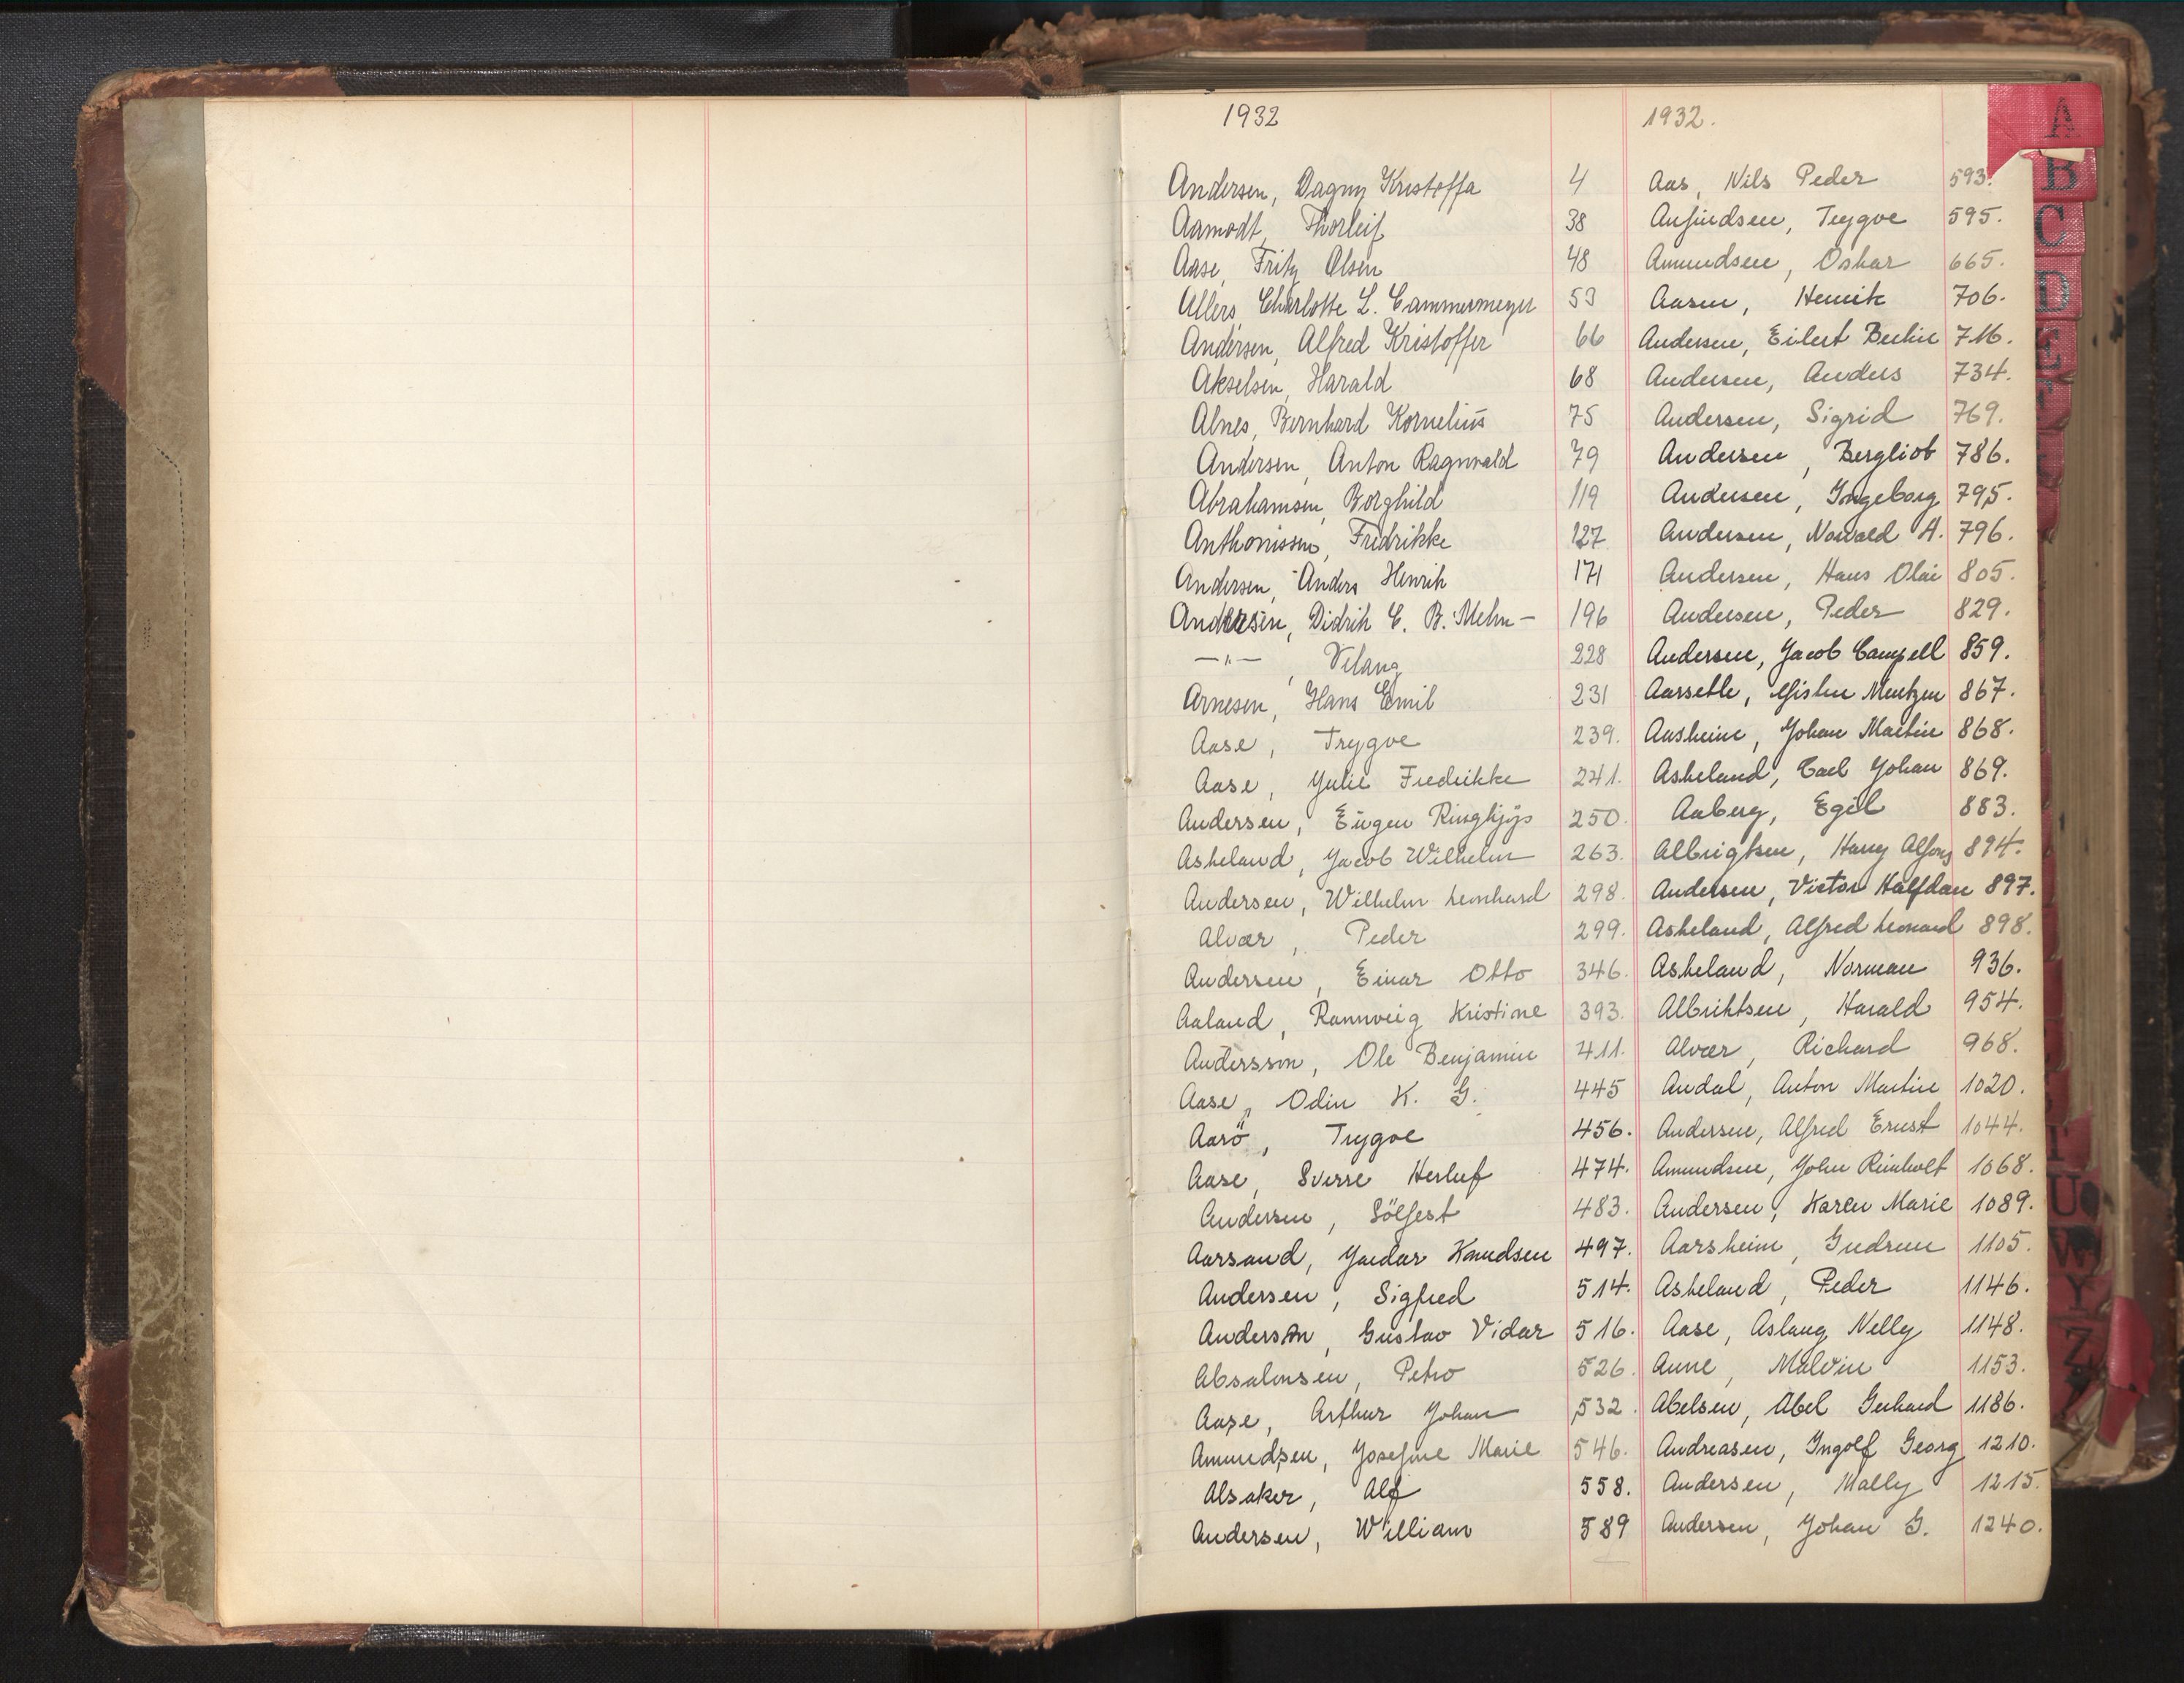 1932
Andersen, Dagny Kristoffa 4
Aamodt, Thorleif 38
Aase, Fritz Olsen 48
Allers, Charlotte L. Cammermeyer 53
Andersen, Alfred Kristoffer 66
Akselsen, Harald 68
Alnes, Bernhard Kornelius 75
Andersen, Anton Ragnvald 79
Abrahamsen, Borghild 119
Anthonissen, Fredrikke 127
Andersen, Anders Henrik 171
Andersen, Didrik C. B. Mehn- 196
—"—, 228
Arnesen, Hans Emil 231
Aase, Trygve 239.
Aase, Julie Fredrikke 241.
Andersen, Eugen 250.
Askeland, Jacob Wilhelm 263.
Andersen, Wilhelm Leonhard 298.
Alvær, Peder 299.
Andersen, Einar Otto 346.
Aaland, Rannveig Kristine 393.
Andersson, Ole Benjamin 411.
Aase, Odin K. G. 445
Aarö, Trygve 456.
Aase, Sverre Herluf 474.
Andersen, Sölfest 483.
Aarsand, Gardar Knudsen 497.
Andersen, Sigfred 514.
Anderson, Gustav Vidar 516.
Absalonsen, Petro 526.
Aase, Arthur Johan 532.
Amundsen, Josefine Marie 546.
Alsaker, Alf 558.
Andersen, William 589
1932.
Aas, Nils Peder 593.
Anfindsen, Trygve 595.
Amundsen, Oskar 665.
Aasen, Henrik 706.
Andersen, Eilert 716.
Andersen, Anders 734.
Andersen, Sigrid 769.
Andersen, Bergliot 786.
Andersen, Ingeborg 795.
Andersen, Norvald A. 796.
Andersen, Hans Olai 805.
Andersen, Peder 829.
Andersen, Jacob Campell 859.
Aarseth, Mentzen 867.
Aasheim, Johan Martin 868.
Askeland, Carl Johan 869.
Aaberg, Egil 883.
Albrigtsen, Harry Alfons 894.
Andersen, Victor Halfdan 897.
Askeland, Alfred Leonard 898.
Askeland, Norman 936.
Albriktsen, Harald 954.
Alvær, Richard 968.
Andal, Anton Martin 1020.
Andersen, Alfred Ernst 1044.
Amundsen, John Reinholt 1068.
Andersen, Karen Marie 1089.
Aarsheim, Gudrun 1105.
Askeland, Peder 1146.
Aase, Aslaug Nelly 1148.
Anne, Malvin 1153.
Abelsen, Abel Gerhard 1186.
Andreasen, Ingolf Georg 1210.
Andersen, Mally 1215.
Andersen, Johan G. 1240.
A
B
C
D
E
U
W
Y
Z